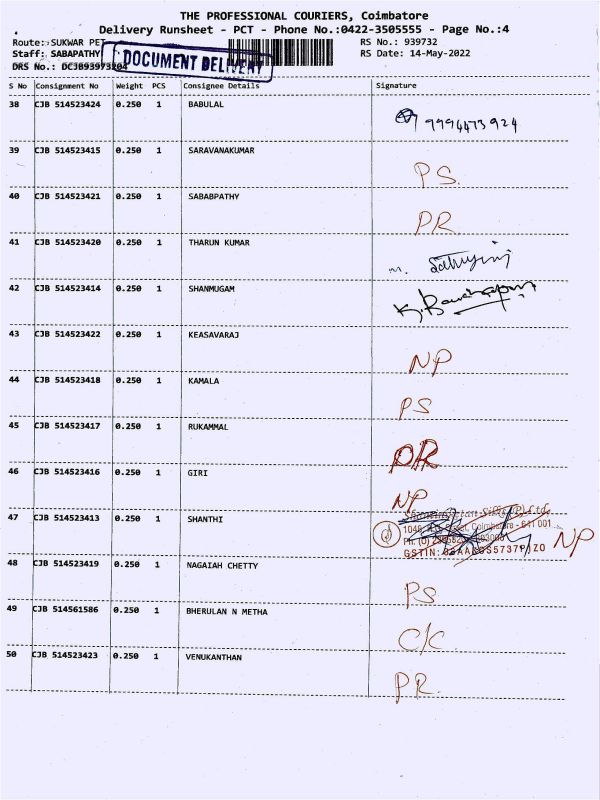 THE PROFESSIONAL COURIERS, Coimbatore
Delivery Runsheet - PCT - Phone No.:0422-3505555 - Page No.:4
Route: SUKWAR PET RS No.: 939732
Staff: SABAPATHY RS Date: 14-May-2022
DRS No.:
DOCUMENT DELIVERY
S No Consignment No Weight PCS Consignee Details Signature
38 CJB 514523424 0.250 1 BABULAL 9994473924
39 CJB 514523415 0.250 1 SARAVANAKUMAR PS.
40 CJB 514523421 0.250 1 SABABPATHY PR
41 CJB 514523420 0.250 1 THARUN KUMAR m.
42 CJB 514523414 0.250 1 SHANMUGAM
43 CJB 514523422 0.250 1 KEASAVARAJ NP
44 CJB 514523418 0.250 1 KAMALA PS
45 CJB 514523417 0.250 1 RUKAMMAL DR
46 CJB 514523416 0.250 1 GIRI NP
47 CJB 514523413 0.250 1 SHANTHI NP
Coimbatore - 641 001
Ph. (O)
GSTIN:
48 CJB 514523419 0.250 1 NAGAIAH CHETTY PS
49 CJB 514561586 0.250 1 BHERULAN N METHA C/C
50 CJB 514523423 0.250 1 VENUKANTHAN PR